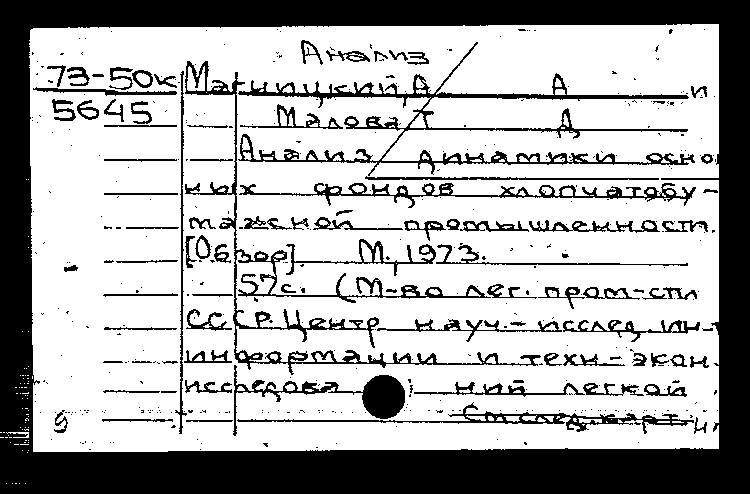 Анализ
73-50к Магницкий, А А и
5645 Малова Т Д
Анализ динамики осно
ных фондов хлопчатобу-
мажной промышленности.
[Обзор]. М., 1973.
57с. (М-во лег. пром-сти
СССР. Центр науч.-исслед. ин-т
информации и техн.-экон.
исследова ний легкой
См. след. карт.
9